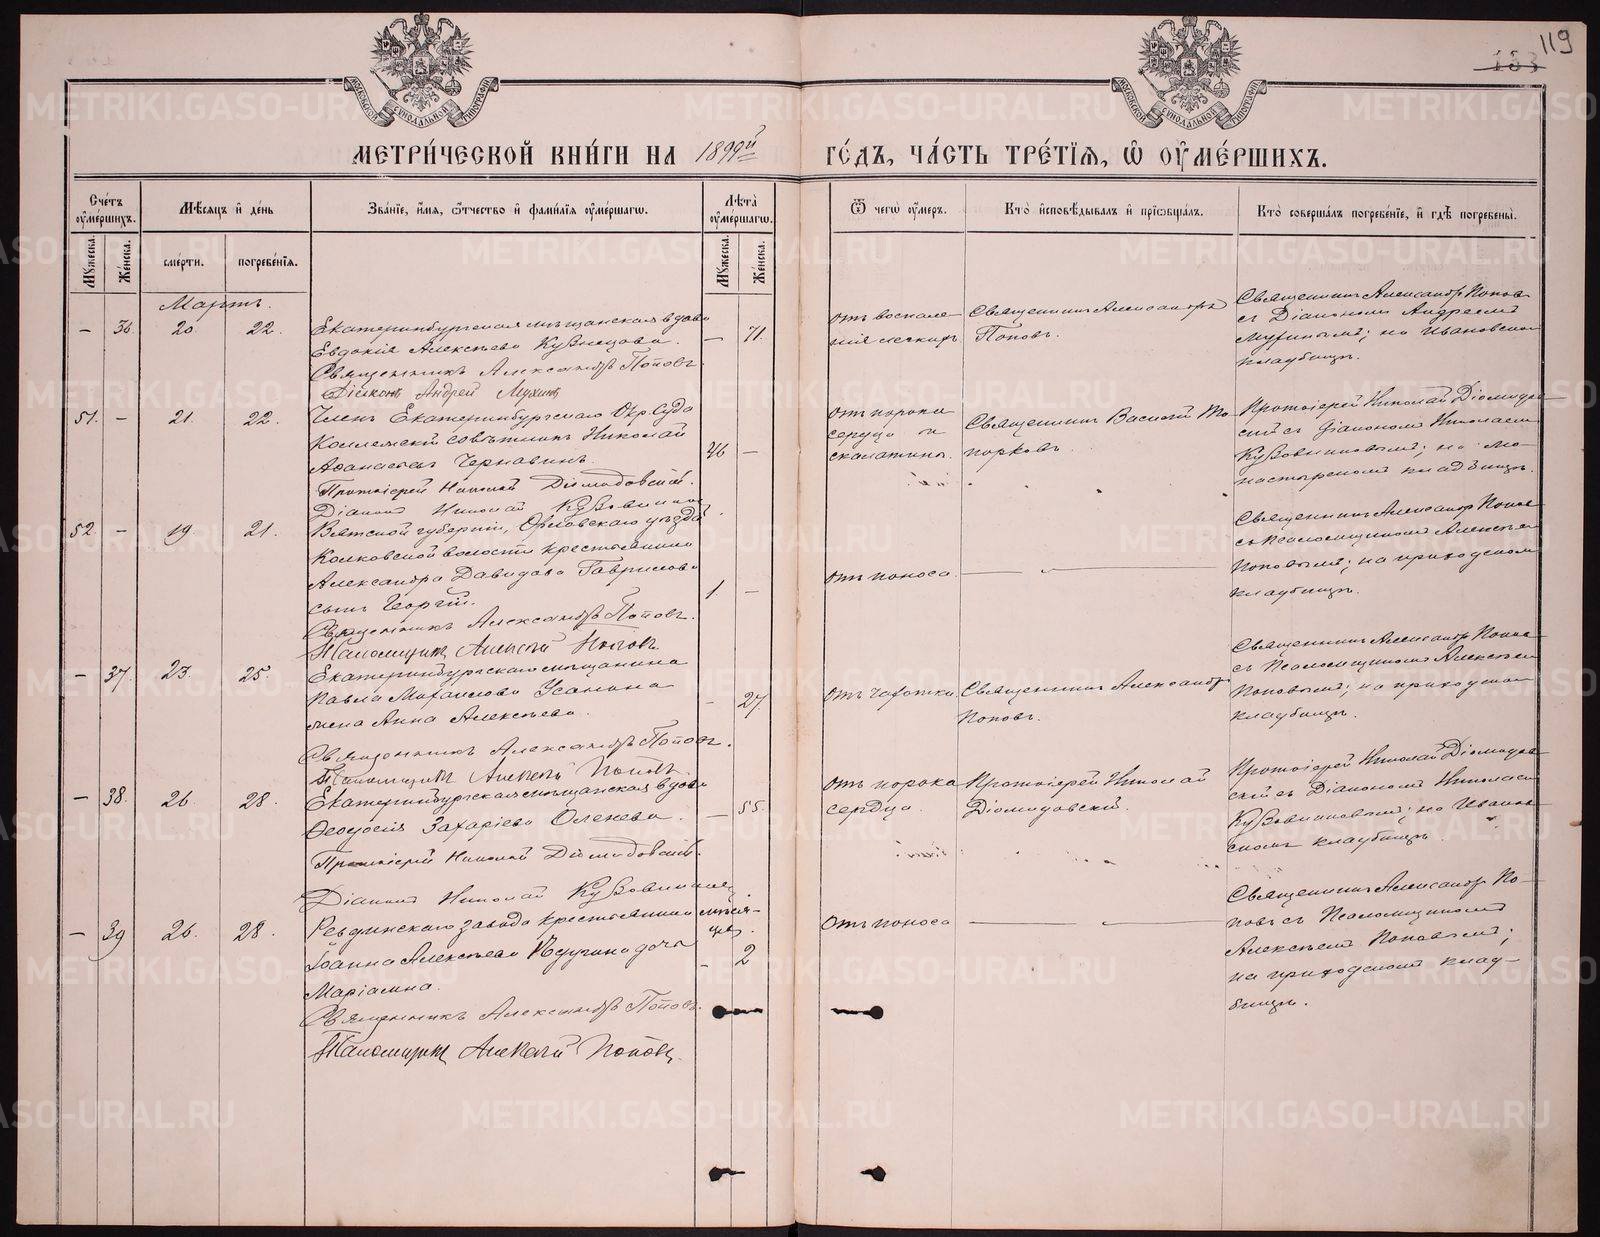 119
183
МОСКОВСКОЙ СѴНОДАЛЬНОЙ ТИПОГРАФІИ
МОСКОВСКОЙ СѴНОДАЛЬНОЙ ТИПОГРАФІИ
МЕТРИ́ЧЕСКОЙ КНИ́ГИ НА 1899й ГО́ДЪ, ЧА́СТЬ ТРЕ́ТІѦ, Ѡ҆ ОУ҆МЕ́РШИХЪ.
Сче́тъ оу҆ме́ршихъ.
Мꙋ́жеска.
Же́нска.
Мѣ́сѧцъ и҆ де́нь
сме́рти.
погребе́нїѧ.
Зва́нїе, и҆́мѧ, ѻ҆́тчество и҆ фами́лїѧ оу҆ме́ршагѡ.
Лѣ́та оу҆ме́ршагѡ.
Мꙋ́жеска.
Же́нска.
Ѿ чегѡ̀ оу҆́меръ.
Кто̀ и҆сповѣ́дывалъ и҆ прїѡбща́лъ.
Кто̀ соверша́лъ погребе́нїе, и҆ гдѣ̀ погребены̀.
Мартъ.
– 36. 20. 22.
Екатеринбургская мѣщанская вдова
Евдокія Алексѣева Кузнецова. – 71.
Священникъ Александръ Поповъ.
Діаконъ Андрей Мухинъ
Отъ воспале
нія легкихъ
Священникъ Александръ
Поповъ.
Священникъ Александръ Поповъ
съ Діакономъ Андреемъ
Мухинымъ; на Ивановскомъ
кладбищѣ.
51. – 21. 22.
Членъ Екатеринбургскаго Окр. Суда
Коллежскій совѣтникъ Николай
Аѳанасіевъ Чернавинъ. 46 –
Протоіерей Николай Діомидовскій.
Діаконъ Николай Кузовниковъ
Отъ порока
сердца и
скалатины.
Священникъ Василій То
порковъ.
Протоіерей Николай Діомидов
скій съ Діакономъ Николаемъ
Кузовниковымъ; на Мо
настырскомъ кладбищѣ.
52 – 19. 21.
Вятской губерніи, Орловскаго уѣзда
волости крестьянина
Александра Давидова Гаврилова
сынъ Георгій. 1 –
Священникъ Александръ Поповъ.
Псаломщикъ Алексѣй Поповъ
Отъ поноса.
Священникъ Александръ Поповъ
съ Псаломщикомъ Алексѣемъ
Поповымъ; на приходскомъ
кладбищѣ.
– 37. 23. 25.
Екатеринбургскаго мѣщанина
Павла Михаилова
жена Анна Алексѣева. – 27.
Священникъ Александръ Поповъ.
Псаломщикъ Алексѣй Поповъ
Отъ чахотки.
Священникъ Александръ
Поповъ.
Священникъ Александръ Поповъ
съ Псаломщикомъ Алексѣемъ
Поповымъ; на приходскомъ
кладбищѣ.
– 38. 26. 28.
Екатеринбургская мѣщанская вдова
Ѳеодосія Захаріева – 55.
Протоіерей Николай Діомидовскій.
Діаконъ Николай Кузовниковъ
Отъ порока
сердца.
Протоіерей Николай
Діомидовскій.
Протоіерей Николай Діомидов
скій съ Діакономъ Николаемъ
Кузовниковымъ; на Иванов
скомъ кладбищѣ.
– 39 26. 28.
Ревдинскаго завода крестьянина мѣся–
цев.
Іоанна Алексѣева дочь – 2
Маріамна.
Священникъ Александръ Поповъ.
Псаломщикъ Алексѣй Поповъ.
Отъ поноса
Священникъ Александръ По–
повъ съ Псаломщикомъ
Алексѣемъ Поповымъ;
на приходскомъ клад–
бищѣ.
METRIKI.GASO-URAL.RU